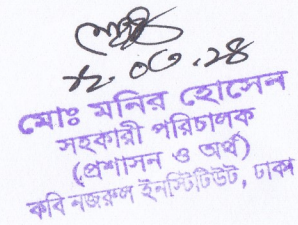 ১২.০৩.২৪
মোঃ মনির হোসেন
সহকারী পরিচালক
(প্রশাসন ও অর্থ)
কবি নজরুল ইনস্টিটিউট, ঢাকা